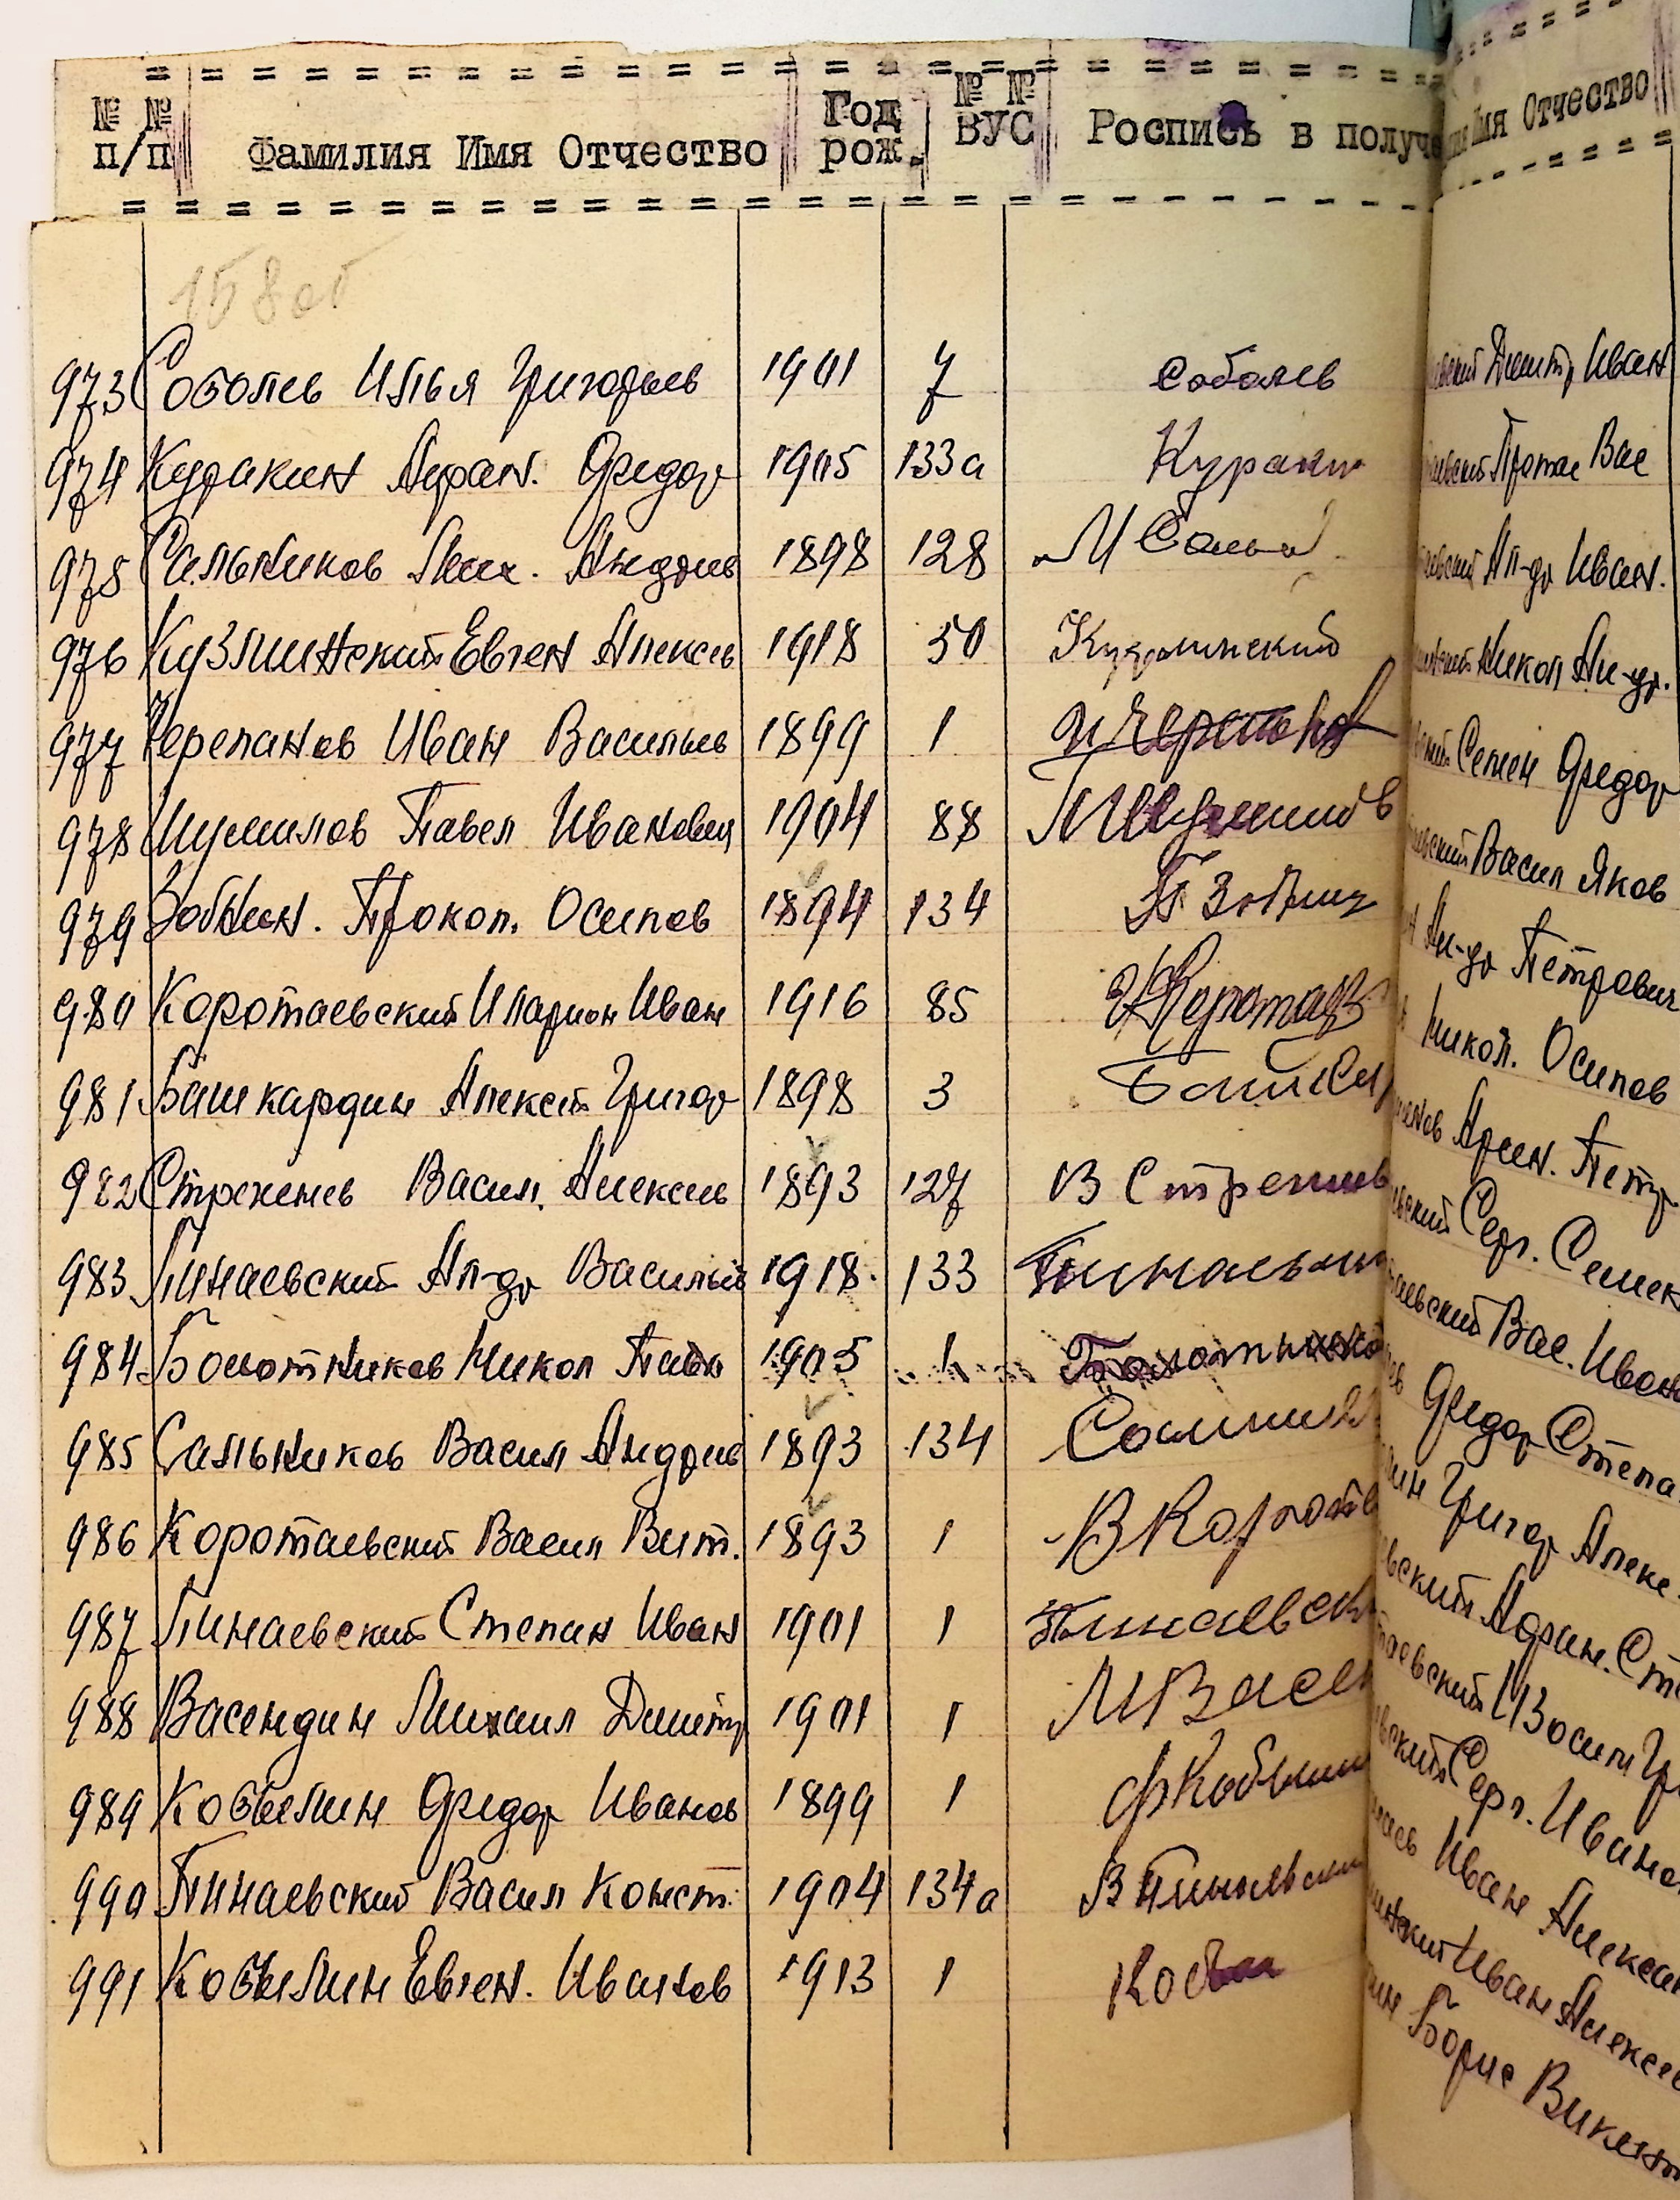 № № п/п Фамилия Имя Отчество Год рож. № № ВУС Роспись в получе
158 об
973 Соболев Илья Григорьев 1901 7 Соболев
974 Куракин Афан. Федор 1905 133а Куракин
975 Сальников Мих. Андрие 1898 128 М Сальн
976 Кузминский Евген Алексев 1918 50 Кузминский
977 Черепанов Иван Васильев 1899 1 И Черепанов
978 Шумилов Павел Иванович 1904 88 Шумилов
979 Зобнин. Прокоп. Осипов 1894 134 П Зобнин
980 Коротаевский Иларион Иван 1916 85 И Коротаев
981 Башкардин Алексей Григор 1898 3 Башка
982 Стрженев Васил. Алексеев 1893 127 В Стренев
983 Пинаевский Ал-др Василье 1918. 133 Пинаевски
984 Болотников Никол Павл 1905 1 Болотнико
985 Сальников Васил Андрие 1893 134 Сальник
986 Коротаевский Васил Вит. 1893 1 В Коротае
987 Пинаевский Степан Иван 1901 1 Пинаевск
988 Васендин Михаил Дмитр 1901 1 М Васен
989 Кобылин Федор Иванов 1899 1 Ф Кобылин
990 Пинаевский Васил Конст. 1904 134а В Пинаевски
991 Кобылин Евген. Иванов 1913 1 Кобыл
Имя Отчество
Дмитр Иван
Протас Вас
Ал-др Иван.
Никол Ал-др.
Семен Федор
Васил Яков
Ал-др Петрович
Никол. Осипов
Арсен. Петр
Серг. Семен
Вас. Иван
Федор Степа
Григор Алекс.
Афан. Ст
Изосим Гр
Серг. Иванов
Иван Алексан
Иван Алексее
Борис Викент